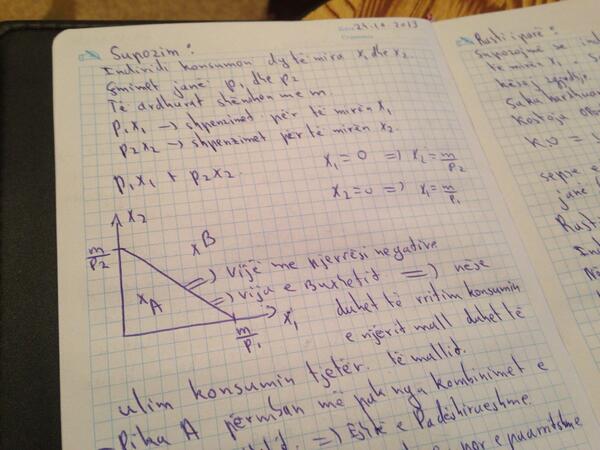 24.10.2013
Supozim:
Individi konsumon dy të mira x1 dhe x2
Çmimet janë p1 dhe p2
Të ardhurat shënohen me m
p1x1 → shpenzimet për të mirën x1
p2x2 → shpenzimet për të mirën x2.
p1x1 + p2x2.
x1=0 => x2=m/p2
x2=0 => x1=m/p1
x2
xB
m/p2
=) Vijë me pjerrësi negative
=) Vija e Buxhetit => nëse
xA
duhet të rritim konsumin
m/p1
x1
e njërit mall duhet të
ulim konsumin tjetër. të mallit.
Pika A përmban më pak nga kombinimet e
=) Është e Padëshirueshme.
por e paarritshme
Rasti i parë:
Supozojmë se
të mirën x1.
kësaj
Saka
Kostoja
sepse
janë
Rasti